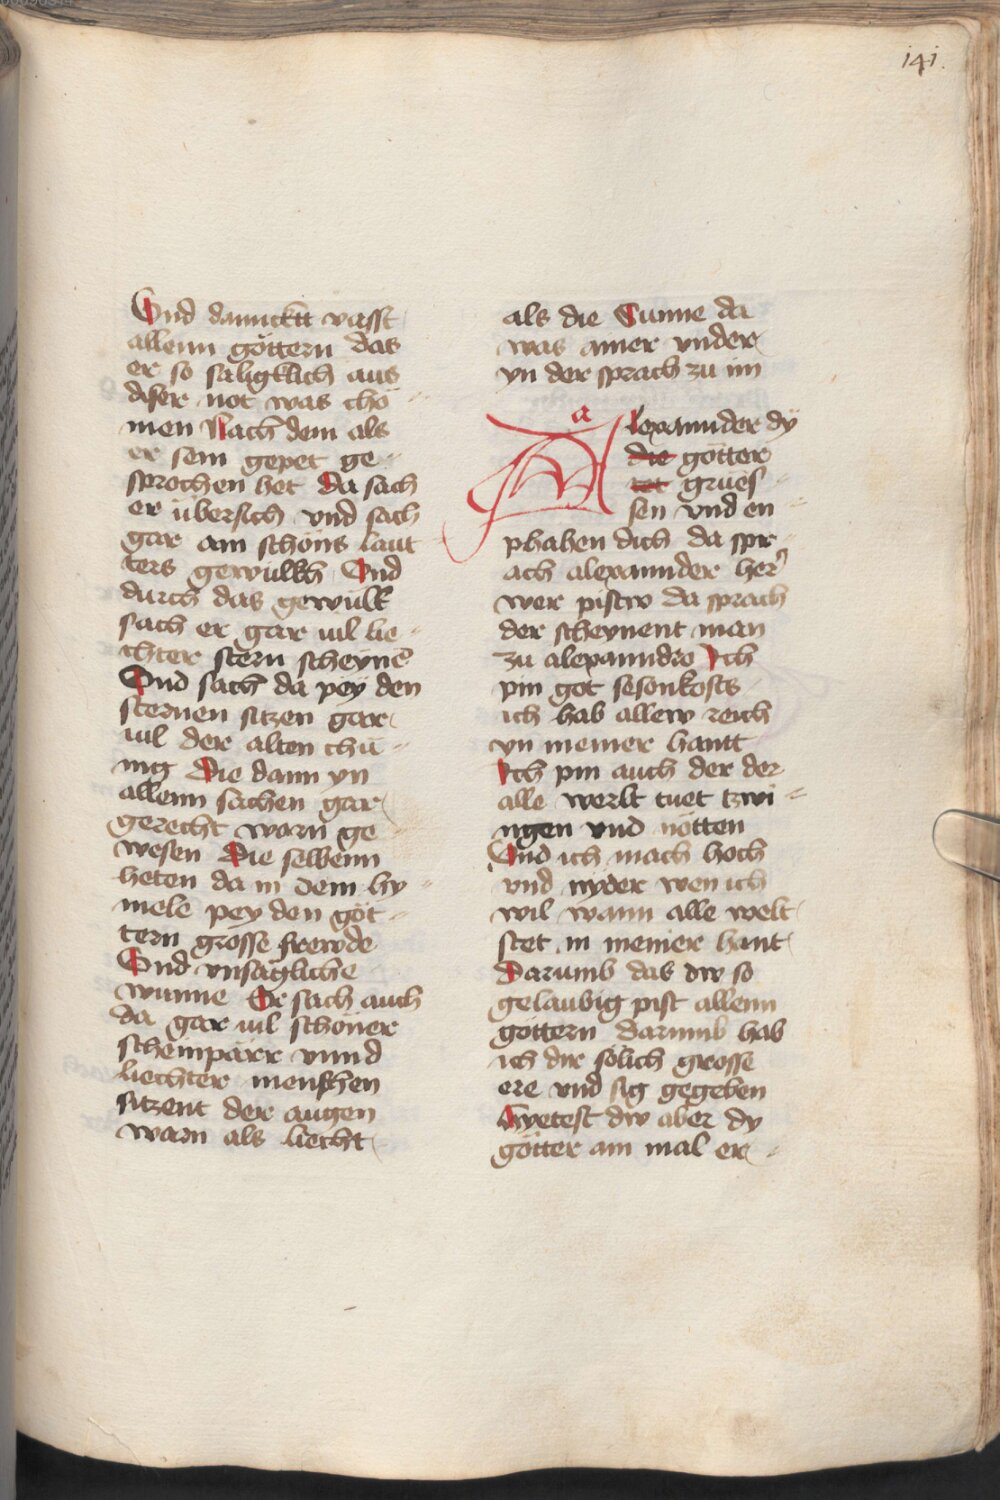 141.
Vnd danncktt vasst
allenn göttern das
er so säligklich aus
diser not was cho
men Nach dem als
er sein gepet ge
sprochen het Da sach
er übersich vnd sach
gar ain schöns laut
ters gewülkh Vnd
durch das gewülk
sach er gar uil lie
chter stern scheyne
Vnd sach da pey den
sternen sitzen gar
uil der alten chü
nig Die dann yn
allenn sachen gar
gerecht warn ge
wesen Die selbenn
heten da in dem hy
mele pey den göt
tern grosse frewde
Vnd vnsägliche
wunne Er sach auch
da gar uil schöner
scheinpärr vnnd
liechter menschen
sitzent der augen
warn als liecht
als die Sunne da
was ainer vnder
yn der sprach zu im
a
Alexannder dy
die götter
tet grües
sen vnd en
phahen dich da spr
ach alexannder her
wer pistw da sprach
der scheynent man
zu alexanndro Ich
pin got sesonkosis
ich hab allew reich
yn meiner hantt
Ich pin auch der der
alle werlt tuet tzwi
ngen vnd nötten
Vnd ich mach hoch
vnd nyder wen ich
wil wann alle welt
stet in meiner hant
Darumb das dw so
gelaubig pist allenn
göttern darumb hab
ich dir sölich grosse
ere vnd sig gegeben
Hyetest dw aber dy
götter ain mal er